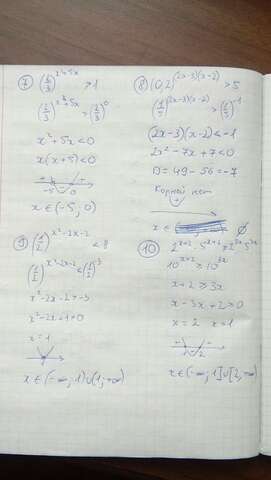 7) (2/3)^(x²+5x) > 1
(2/3)^(x²+5x) > (2/3)^0
x²+5x<0
x(x+5)<0
+ - +
-5 0
x ∈ (-5; 0)
8) (0,2)^((2x-3)(x-2)) > 5
(1/5)^((2x-3)(x-2)) > (1/5)^(-1)
(2x-3)(x-2)<-1
2x²-7x+7<0
D=49-56=-7
Корней нет
+
x ∈ ∅
9) (1/2)^(x²-2x-2) < 8
(1/2)^(x²-2x-2) < (1/2)^(-3)
x²-2x-2>-3
x²-2x+1>0
x=1
x ∈ (-∞; 1)∪(1; +∞)
10) 2^(x+2) · 5^(x+2) ≥ 2^(3x) 5^(3x)
10^(x+2) ≥ 10^(3x)
x+2 ≥ 3x
x-3x+2≥0
x=2 x=1
1 2
x ∈ (-∞; 1]∪[2; +∞)